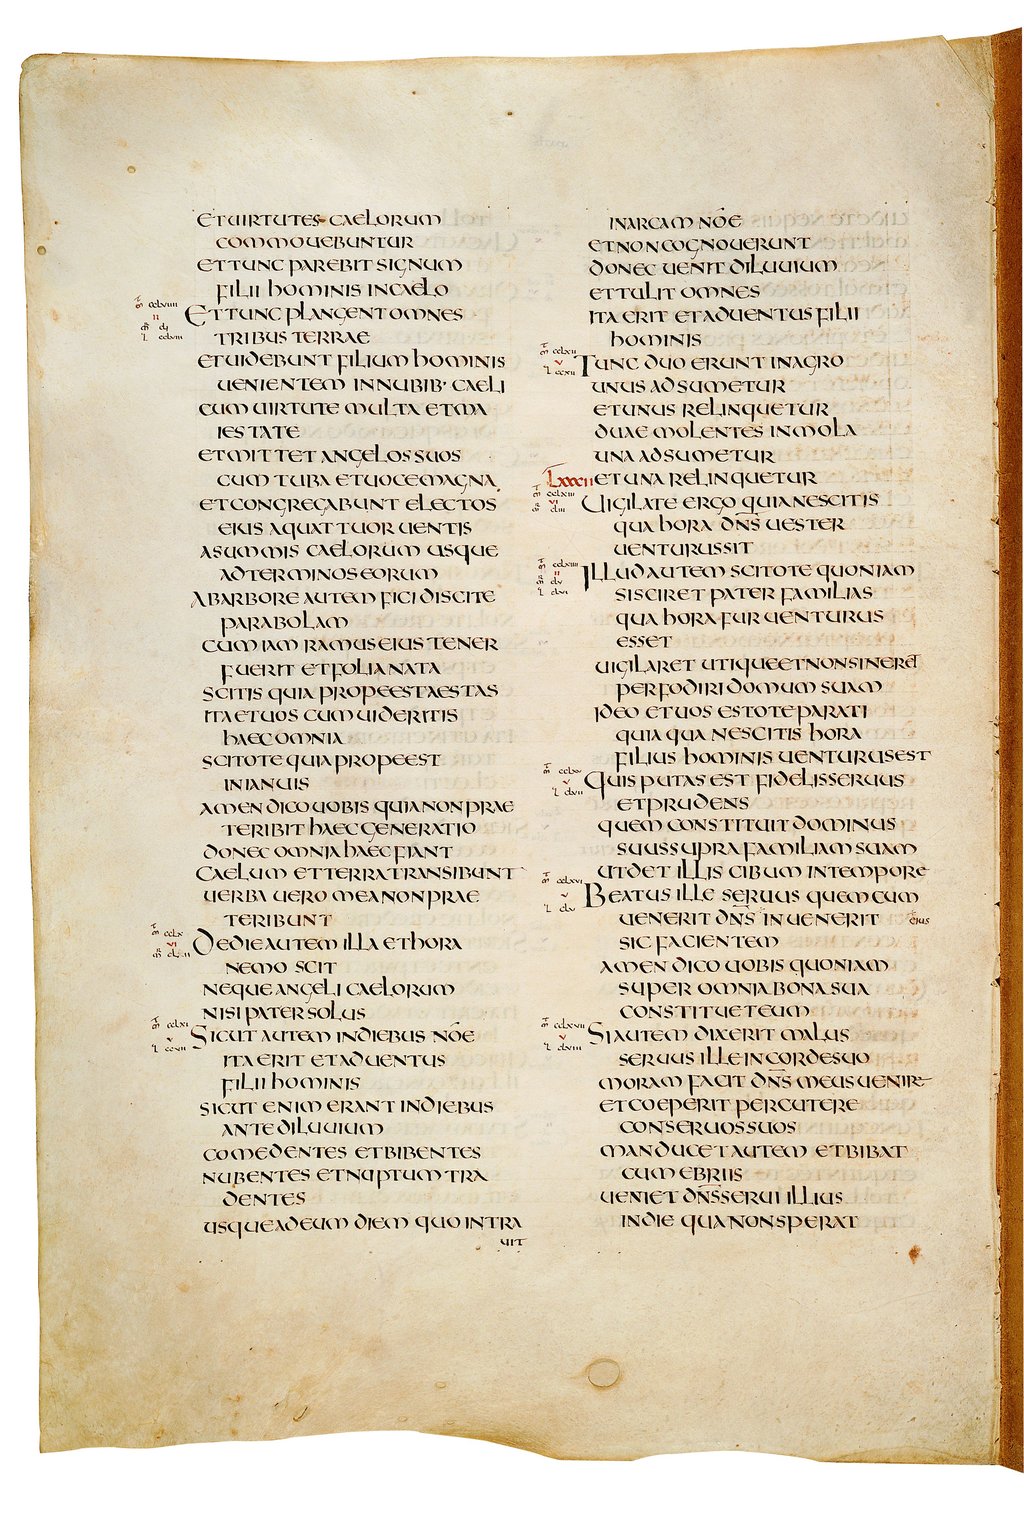 ET UIRTUTES CAELORUM
COMMOUEBUNTUR
ET TUNC PAREBIT SIGNUM
FILII HOMINIS IN CAELO
ET TUNC PLANGENT OMNES
TRIBUS TERRAE
ET UIDEBUNT FILIUM HOMINIS
UENIENTEM IN NUBIB· CAELI
CUM UIRTUTE MULTA ET MA
IESTATE
ET MITTET ANGELOS SUOS
CUM TUBA ET UOCE MAGNA
ET CONGREGABUNT ELECTOS
EIUS A QUATTUOR UENTIS
A SUMMIS CAELORUM USQUE
AD TERMINOS EORUM
AB ARBORE AUTEM FICI DISCITE
PARABOLAM
CUM IAM RAMUS EIUS TENER
FUERIT ET FOLIA NATA
SCITIS QUIA PROPE EST AESTAS
ITA ET UOS CUM UIDERITIS
HAEC OMNIA
SCITOTE QUIA PROPE EST
IN IANUIS
AMEN DICO UOBIS QUIA NON PRAE
TERIBIT HAEC GENERATIO
DONEC OMNIA HAEC FIANT
CAELUM ET TERRA TRANSIBUNT
UERBA UERO MEA NON PRAE
TERIBUNT
DE DIE AUTEM ILLA ET HORA
NEMO SCIT
NEQUE ANGELI CAELORUM
NISI PATER SOLUS
SICUT AUTEM IN DIEBUS NOE
ITA ERIT ET ADUENTUS
FILII HOMINIS
SICUT ENIM ERANT IN DIEBUS
ANTE DILUUIUM
COMEDENTES ET BIBENTES
NUBENTES ET NUPTUM TRA
DENTES
USQUE AD EUM DIEM QUO INTRA
UIT
IN ARCAM NOE
ET NON COGNOUERUNT
DONEC UENIT DILUUIUM
ET TULIT OMNES
ITA ERIT ET ADUENTUS FILII
HOMINIS
TUNC DUO ERUNT IN AGRO
UNUS ADSUMETUR
ET UNUS RELINQUETUR
DUAE MOLENTES IN MOLA
UNA ADSUMETUR
LXXXII ET UNA RELINQUETUR
UIGILATE ERGO QUIA NESCITIS
QUA HORA DN̅S UESTER
UENTURUS SIT
ILLUD AUTEM SCITOTE QUONIAM
SI SCIRET PATER FAMILIAS
QUA HORA FUR UENTURUS
ESSET
UIGILARET UTIQUE ET NON SINERET
PERFODIRI DOMUM SUAM
IDEO ET UOS ESTOTE PARATI
QUIA QUA NESCITIS HORA
FILIUS HOMINIS UENTURUS EST
QUIS PUTAS EST FIDELIS SERUUS
ET PRUDENS
QUEM CONSTITUIT DOMINUS
SUUS SUPRA FAMILIAM SUAM
UT DET ILLIS CIBUM IN TEMPORE
BEATUS ILLE SERUUS QUEM CUM
UENERIT DN̅S EIUS INUENERIT
SIC FACIENTEM
AMEN DICO UOBIS QUONIAM
SUPER OMNIA BONA SUA
CONSTITUET EUM
SI AUTEM DIXERIT MALUS
SERUUS ILLE IN CORDE SUO
MORAM FACIT DN̅S MEUS UENIRE
ET COEPERIT PERCUTERE
CONSERUOS SUOS
MANDUCET AUTEM ET BIBAT
CUM EBRIIS
UENIET DN̅S SERUI ILLIUS
IN DIE QUA NON SPERAT